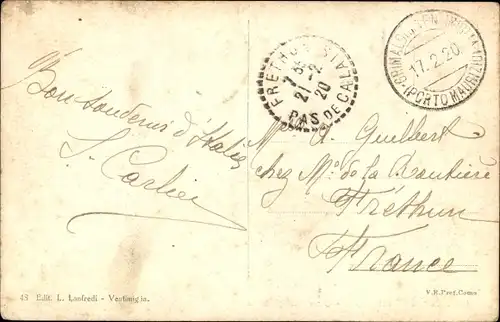 Bon souvenir d'Italie
S. Carlier
FRETHUN
7 35
21 - 2
20
PAS DE CALAIS
GRIMALDI
17.2.20
(PORTO MAURIZIO)
A. Guilbert
chez Mr de la
Fréthun
France
43 Edit. L. Lanfredi - Ventimiglia.
V.R. Pref. Como